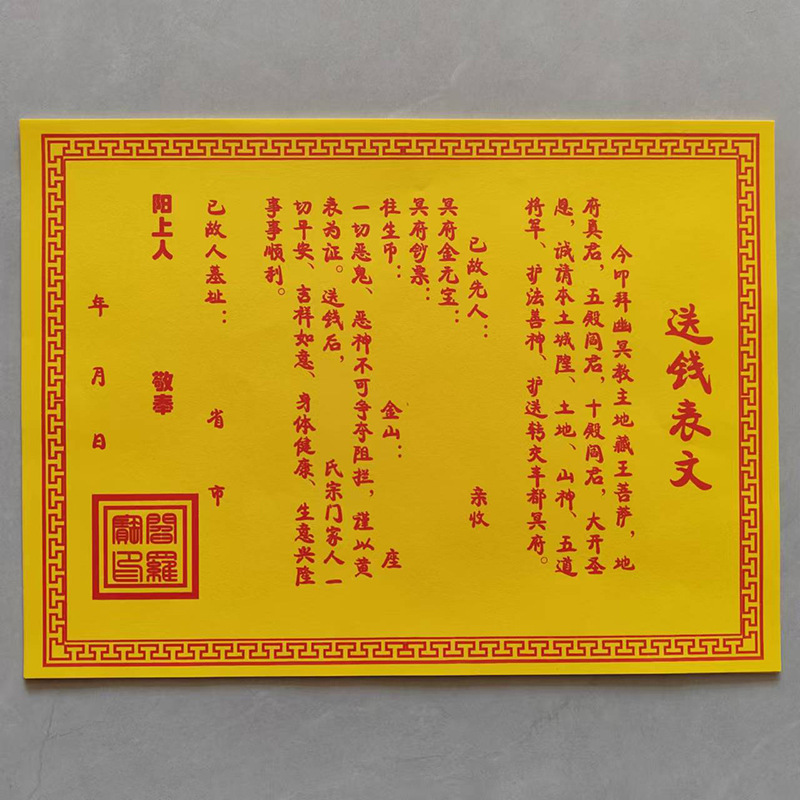 送钱表文
今叩拜幽冥教主地藏王菩萨，地
府真君，五殿阎君，十殿阎君，大开圣
恩，诚请本土城隍、土地、山神、五道
将军、护法善神、护送转交丰都冥府。
已故先人： 亲收
冥府金元宝：
冥府钞票： 金山： 座
往生币：
一切恶鬼、恶神不可争夺阻拦，谨以黄
表为证。送钱后， 氏宗门家人一
切平安、吉祥如意、身体健康、生意兴隆
事事顺利。
已故人墓址： 省 市
阳上人 敬奉
年 月 日
閻羅
寳印